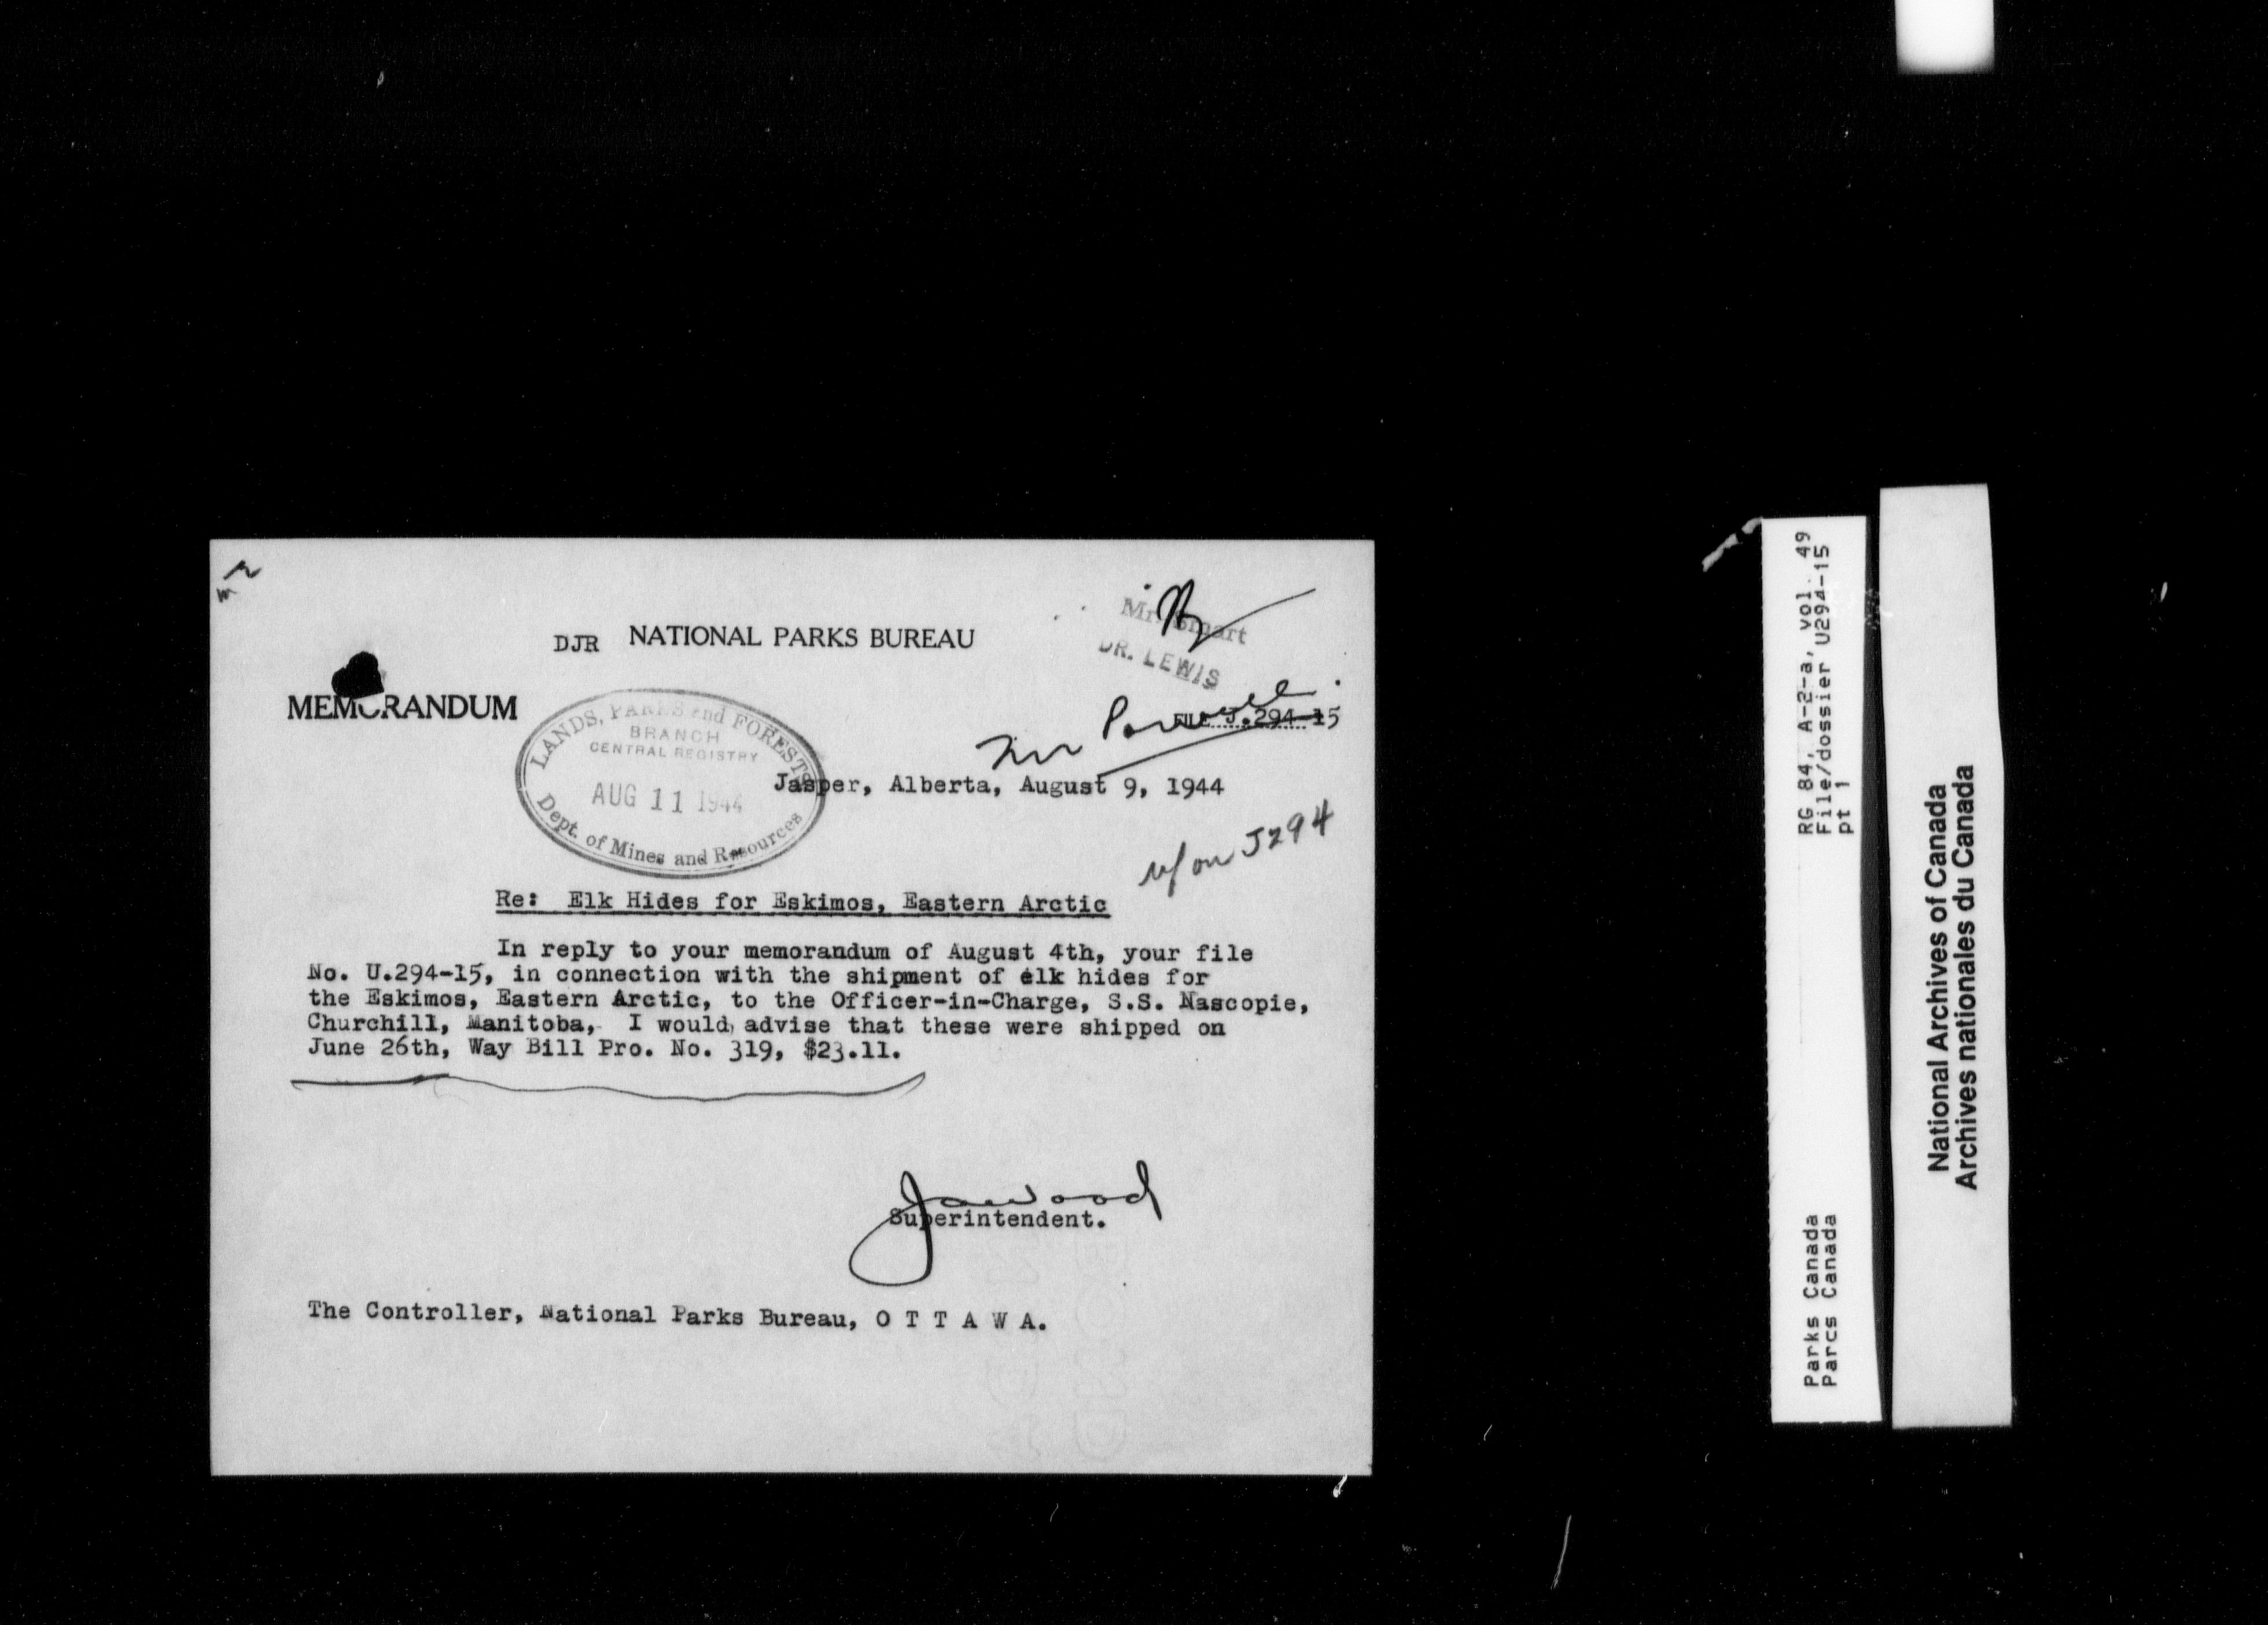 DJR NATIONAL PARKS BUREAU
Mr. Smart
DR. LEWIS
MEMORANDUM
FILE J.294-15
Mr Powell
LANDS, PARKS and FORESTS
BRANCH
CENTRAL REGISTRY
AUG 11 1944
Dept. of Mines and Resources
Jasper, Alberta, August 9, 1944
on J294
Re: Elk Hides for Eskimos, Eastern Arctic
In reply to your memorandum of August 4th, your file
No. U.294-15, in connection with the shipment of elk hides for
the Eskimos, Eastern Arctic, to the Officer-in-Charge, S.S. Nascopie,
Churchill, Manitoba, I would advise that these were shipped on
June 26th, Way Bill Pro. No. 319, $23.11.
JAWood
Superintendent.
The Controller, National Parks Bureau, O T T A W A.
RG 84, A-2-a, vol. 49
File/dossier U294-15
pt 1
Parks Canada
Parcs Canada
National Archives of Canada
Archives nationales du Canada